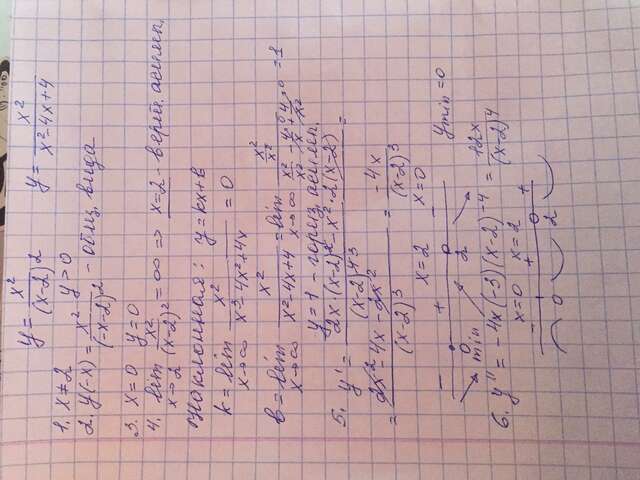 y = x²/(x-2)²   y = x²/(x²-4x+4)
1. x ≠ 2   y > 0
2. y(-x) = x²/(-x-2)² - общ. вида
3. x=0   y=0
4. lim x→2 x²/(x-2)² = ∞ ⇒ x=2 - верт. асимп.
Наклонная: y = kx+b
k = lim x→∞ x²/(x³-4x²+4x) = 0
b = lim x→∞ x²/(x²-4x+4) = lim x→∞ = 1
y=1 - гориз. асимп.
5. y' = (2x·(x-2)² - x²·2(x-2))/(x-2)⁴ =
= (2x²-4x-2x²)/(x-2)³ = -4x/(x-2)³
x=2   x=0
- + -
0 2
min   ymin=0
6. y'' = -4x(-3)(x-2)⁻⁴ = +12x/(x-2)⁴
x=0   x=2
- + +
0 2